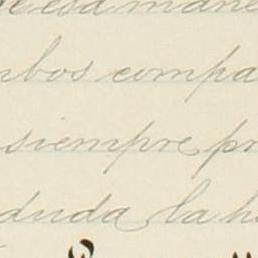 de esa mane
mbos compa
siempre pr
duda la h